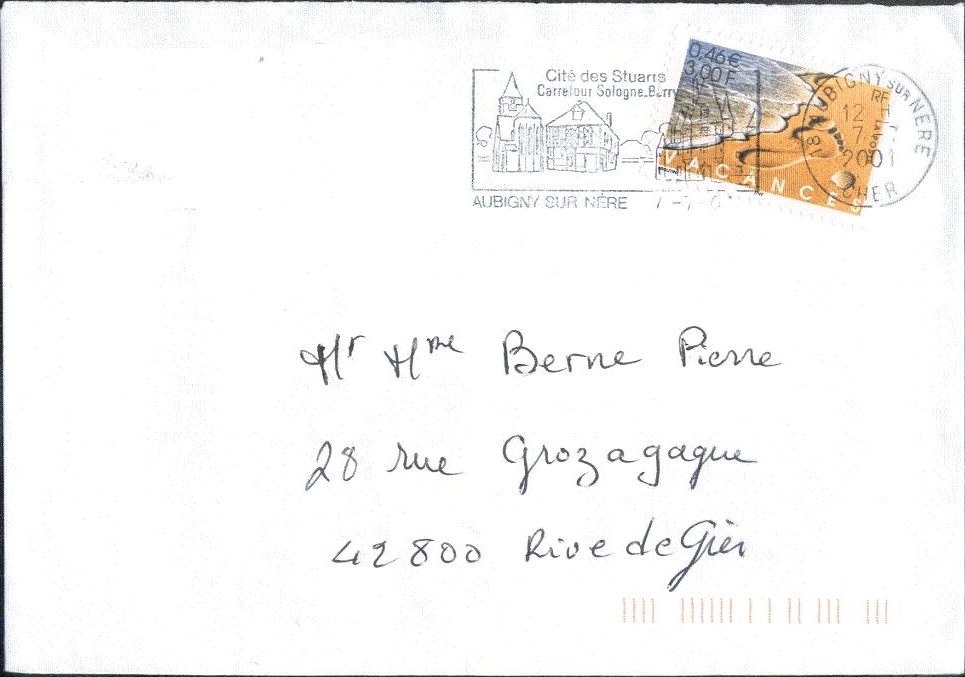 Cité des Stuarts
Carrefour Sologne-Berry
AUBIGNY SUR NÈRE 7-7-0
0,46 €
3,00 F
VACANCES
RF
18 AUBIGNY SUR NERE
12 H
7-7
2001
CHER
Mr Mme Berne Pierre
28 rue Grozagaque
42800 Rive de Gier